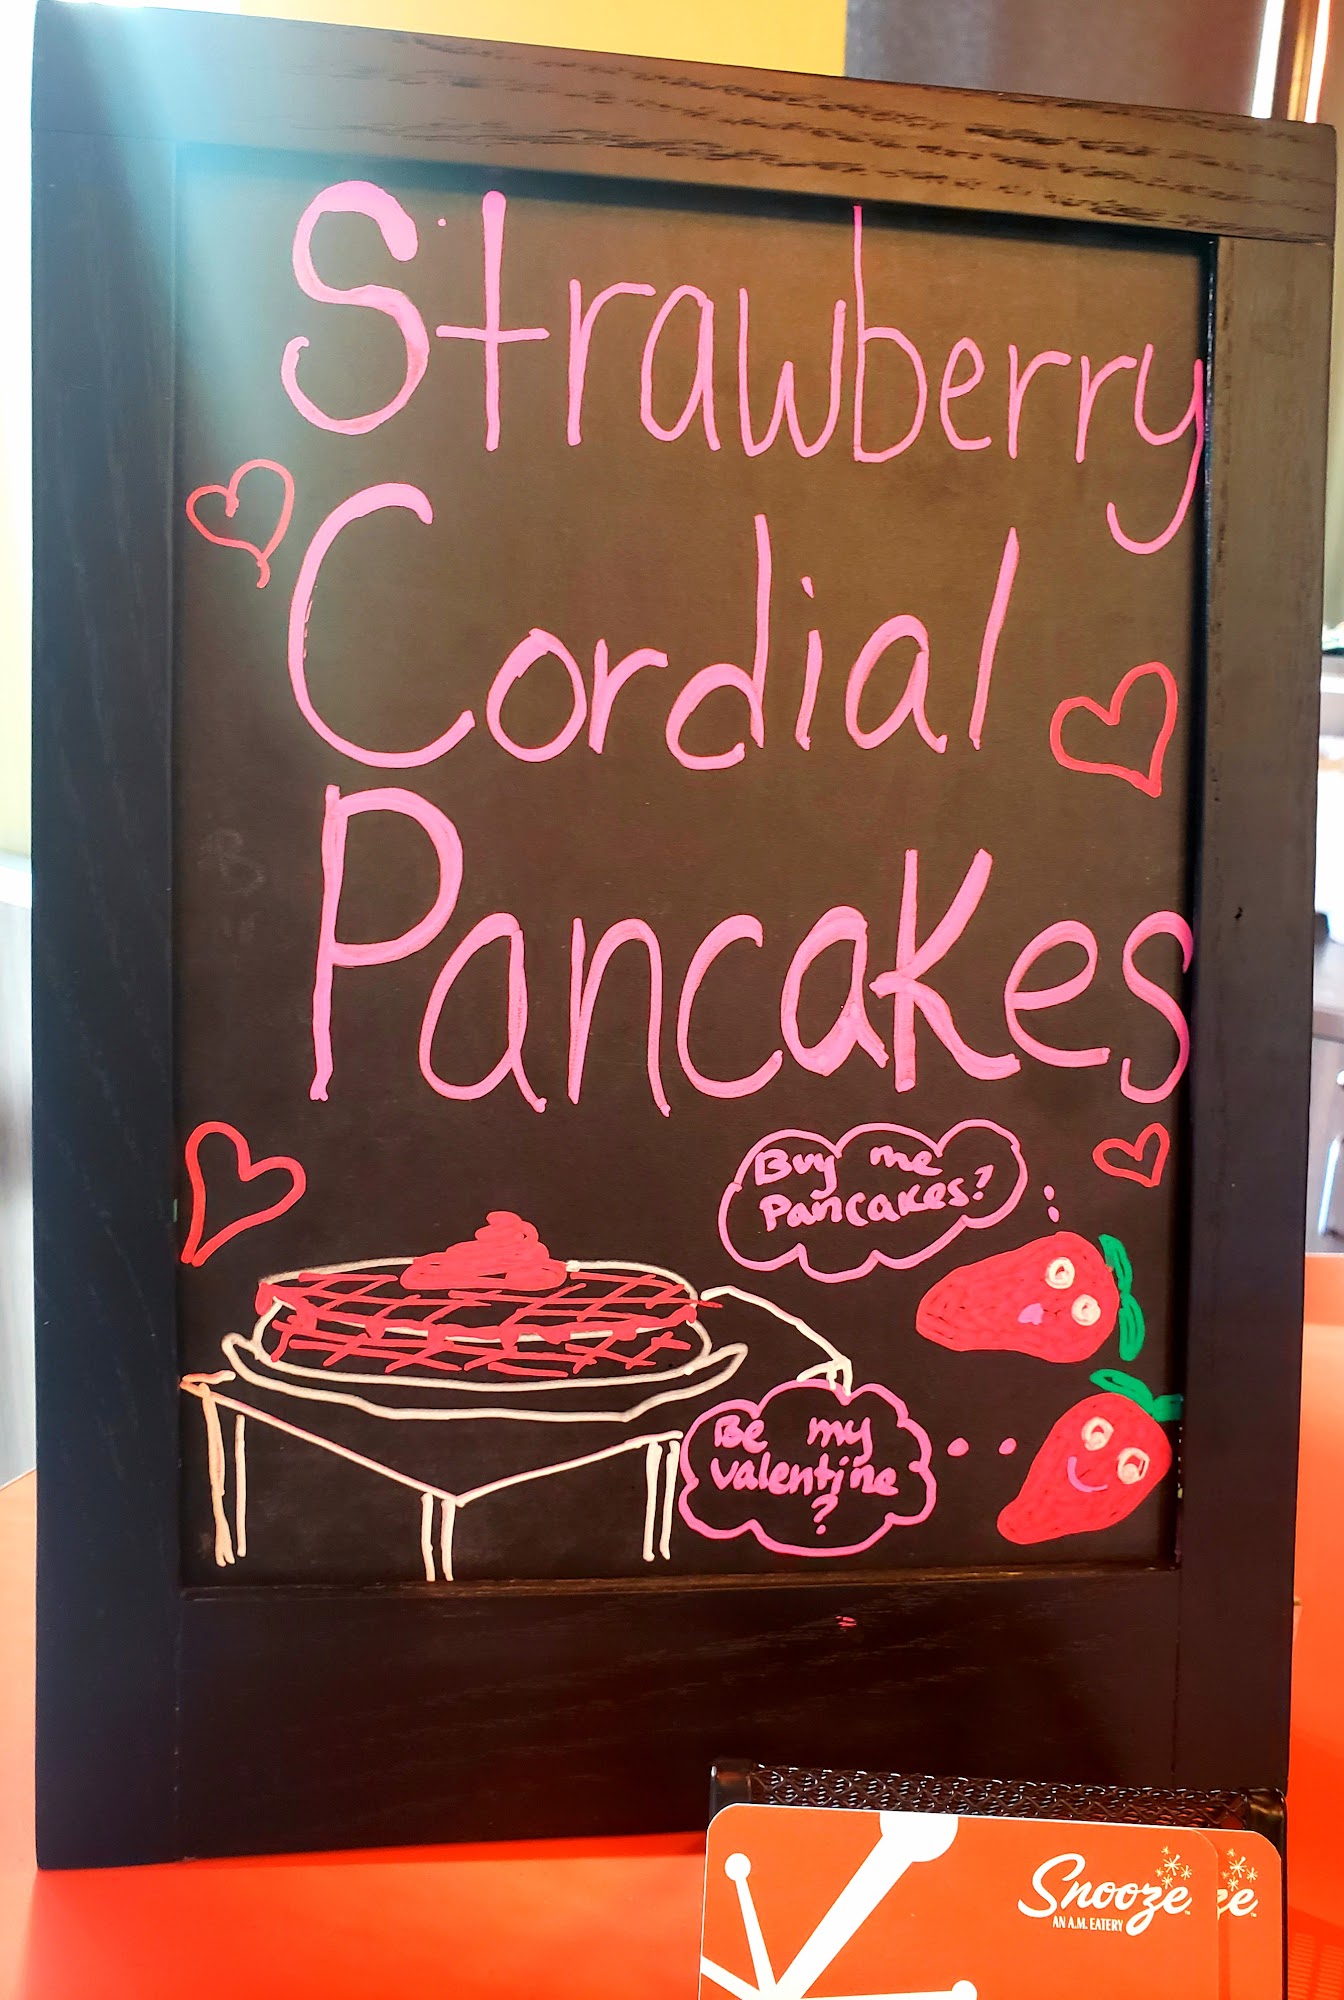 Strawberry
Cordial
Pancakes
Buy me
Pancakes?
Be my
valentine
?
Snooze
AN A.M. EATERY
ze